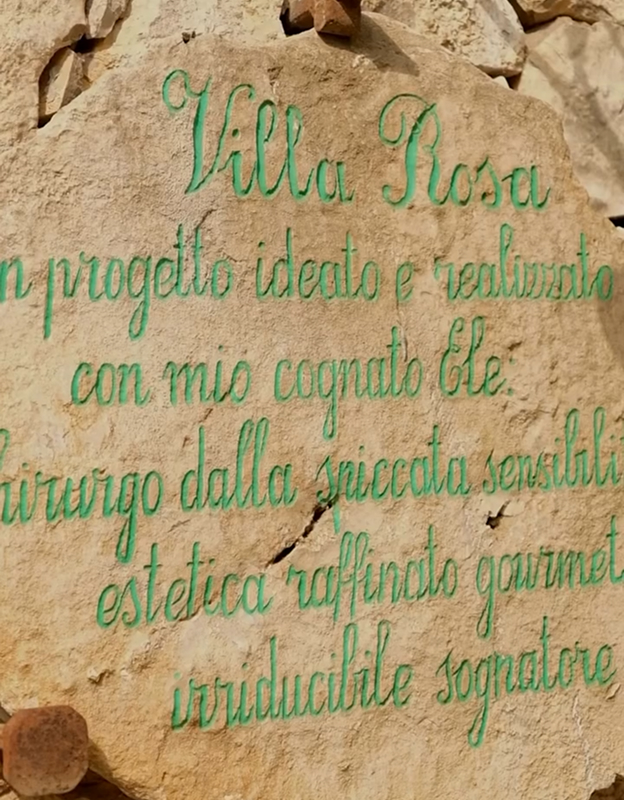 Villa Rosa
n progetto ideato e realizzato
con mio cognato Ele:
hirurgo dalla spiccata sensibili
estetica raffinato gourmet
irriducibile sognatore